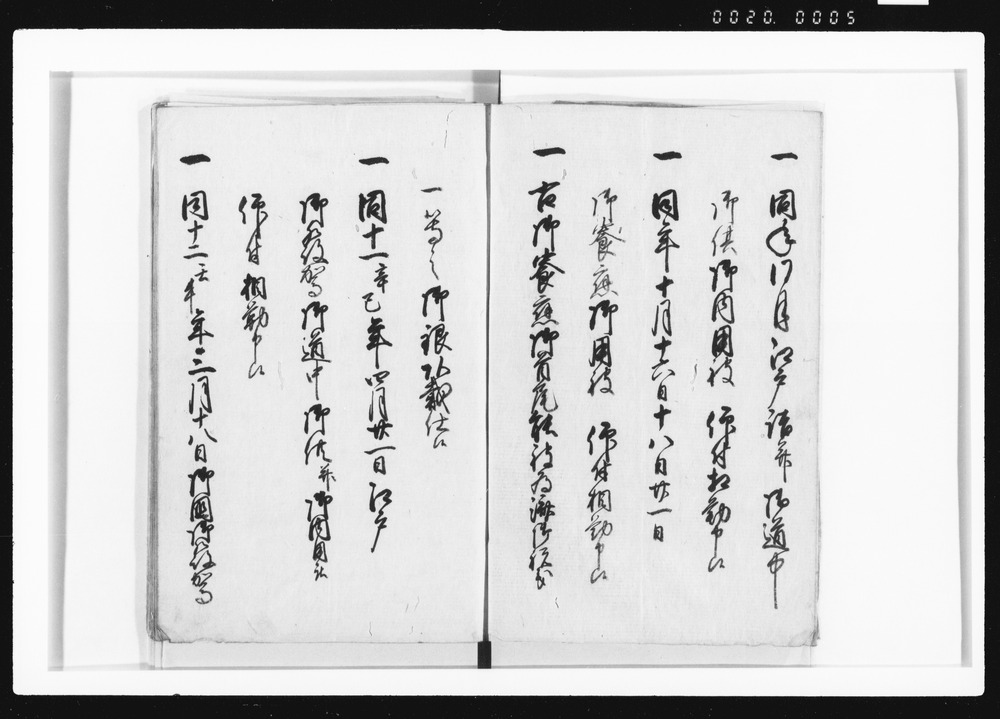 0020.0005
一 同年 月江戸詰并御道中
御供御内用役 仰付相勤申候
一 同年十月十六日十八日廿一日
御饗應御用役 仰付相勤申候
一 右御饗應御首尾能被為済御祝
一 等之御銀頂戴仕候
一 同十一辛巳年四月廿一日江戸
御發駕御道中御供并御内用
仰付相勤申候
一 同十二壬午年三月十八日御國御發駕